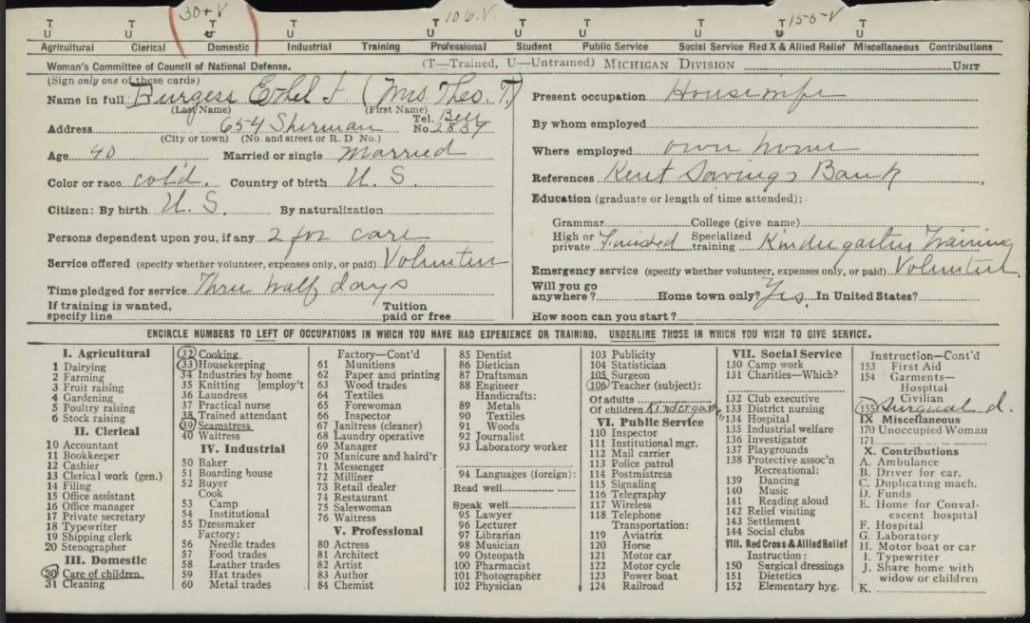 30+V 106.V. 155-V
T T T T T T T T T T T
U U U U U U U U U U U
Agricultural Clerical Domestic Industrial Training Professional Student Public Service Social Service Red X & Allied Relief Miscellaneous Contributions
Woman's Committee of Council of National Defense. (T—Trained, U—Untrained) MICHIGAN DIVISION UNIT
(Sign only one of these cards)
Name in full Burgess Ethel J. (Mrs Theo. T.)
(Last Name) (First Name)
Address 654 Sherman Tel. No. Bell 2839
(City or town) (No. and street or R. D No.)
Age 40 Married or single Married
Color or race col'd. Country of birth U. S.
Citizen: By birth U. S. By naturalization
Persons dependent upon you, if any 2 for care
Service offered (specify whether volunteer, expenses only, or paid) Volunteer
Time pledged for service Three half days
If training is wanted, specify line Tuition paid or free
Present occupation Housewife
By whom employed
Where employed own home
References Kent Savings Bank
Education (graduate or length of time attended):
Grammar College (give name)
High or private Finished Specialized training Kindergarten Training
Emergency service (specify whether volunteer, expenses only, or paid) Volunteer
Will you go anywhere? Home town only? Yes. In United States?
How soon can you start?
ENCIRCLE NUMBERS TO LEFT OF OCCUPATIONS IN WHICH YOU HAVE HAD EXPERIENCE OR TRAINING. UNDERLINE THOSE IN WHICH YOU WISH TO GIVE SERVICE.
I. Agricultural
1 Dairying
2 Farming
3 Fruit raising
4 Gardening
5 Poultry raising
6 Stock raising
II. Clerical
10 Accountant
11 Bookkeeper
12 Cashier
13 Clerical work (gen.)
14 Filing
15 Office assistant
16 Office manager
17 Private secretary
18 Typewriter
19 Shipping clerk
20 Stenographer
III. Domestic
30 Care of children
31 Cleaning
32 Cooking
33 Housekeeping
34 Industries by home
35 Knitting [employ't
36 Laundress
37 Practical nurse
38 Trained attendant
39 Seamstress
40 Waitress
IV. Industrial
50 Baker
51 Boarding house
52 Buyer
Cook
53 Camp
54 Institutional
55 Dressmaker
Factory:
56 Needle trades
57 Food trades
58 Leather trades
59 Hat trades
60 Metal trades
Factory—Cont'd
61 Munitions
62 Paper and printing
63 Wood trades
64 Textiles
65 Forewoman
66 Inspector
67 Janitress (cleaner)
68 Laundry operative
69 Manager
70 Manicure and haird'r
71 Messenger
72 Milliner
73 Retail dealer
74 Restaurant
75 Saleswoman
76 Waitress
V. Professional
80 Actress
81 Architect
82 Artist
83 Author
84 Chemist
85 Dentist
86 Dietician
87 Draftsman
88 Engineer
Handicrafts:
89 Metals
90 Textiles
91 Woods
92 Journalist
93 Laboratory worker
94 Languages (foreign):
Read well
Speak well
95 Lawyer
96 Lecturer
97 Librarian
98 Musician
99 Osteopath
100 Pharmacist
101 Photographer
102 Physician
103 Publicity
104 Statistician
105 Surgeon
106 Teacher (subject):
Of adults
Of children Kindergarten
VI. Public Service
110 Inspector
111 Institutional mgr.
112 Mail carrier
113 Police patrol
114 Postmistress
115 Signaling
116 Telegraphy
117 Wireless
118 Telephone
Transportation:
119 Aviatrix
120 Horse
121 Motor car
122 Motor cycle
123 Power boat
124 Railroad
VII. Social Service
130 Camp work
131 Charities—Which?
132 Club executive
133 District nursing
134 Hospital
135 Industrial welfare
136 Investigator
137 Playgrounds
138 Protective assoc'n
Recreational:
139 Dancing
140 Music
141 Reading aloud
142 Relief visiting
143 Settlement
144 Social clubs
VIII. Red Cross & Allied Relief
Instruction:
150 Surgical dressings
151 Dietetics
152 Elementary hyg.
Instruction—Cont'd
153 First Aid
154 Garments—
Hospital
Civilian
155 Surgical d.
IX Miscellaneous
170 Unoccupied Woman
171
X. Contributions
A. Ambulance
B. Driver for car.
C. Duplicating mach.
D. Funds
E. Home for Convalescent hospital
F. Hospital
G. Laboratory
H. Motor boat or car
I. Typewriter
J. Share home with widow or children
K.